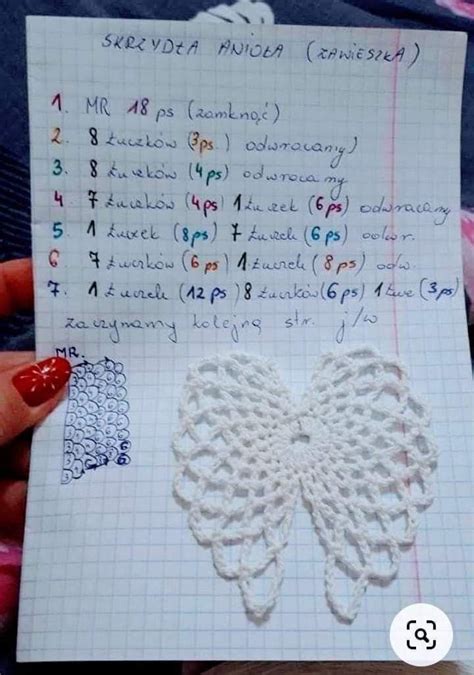 SKRZYDŁA ANIOŁA (ZAWIESZKA)
1. MR 18 ps (zamknąć)
2. 8 łuczków (3ps) odwracamy)
3. 8 łuczków (4ps) odwracamy
4 7 łuczków (4ps) 1 łuczek (6ps) odwracamy
5. 1 łuczek (8ps) 7 łuczk (6ps) odwr.
6 7 łuczków (6ps) 1 łuczek (8ps) odw.
7. 1 łuczek (12ps) 8 łuczków (6ps) 1 łucz (3ps)
zaczynamy kolejną str. j/w
MR.